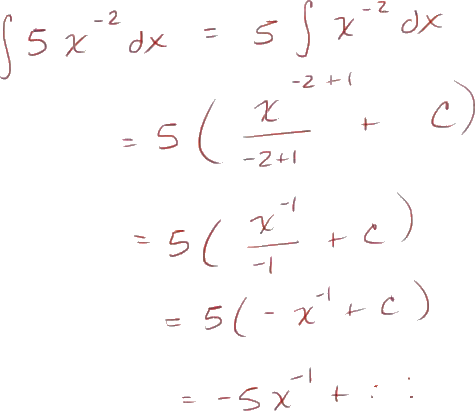 ∫ 5 x⁻² dx = 5 ∫ x⁻² dx
= 5 ( x⁻²⁺¹ / -2+1 + C )
= 5 ( x⁻¹ / -1 + C )
= 5 ( - x⁻¹ + C )
= -5 x⁻¹ +